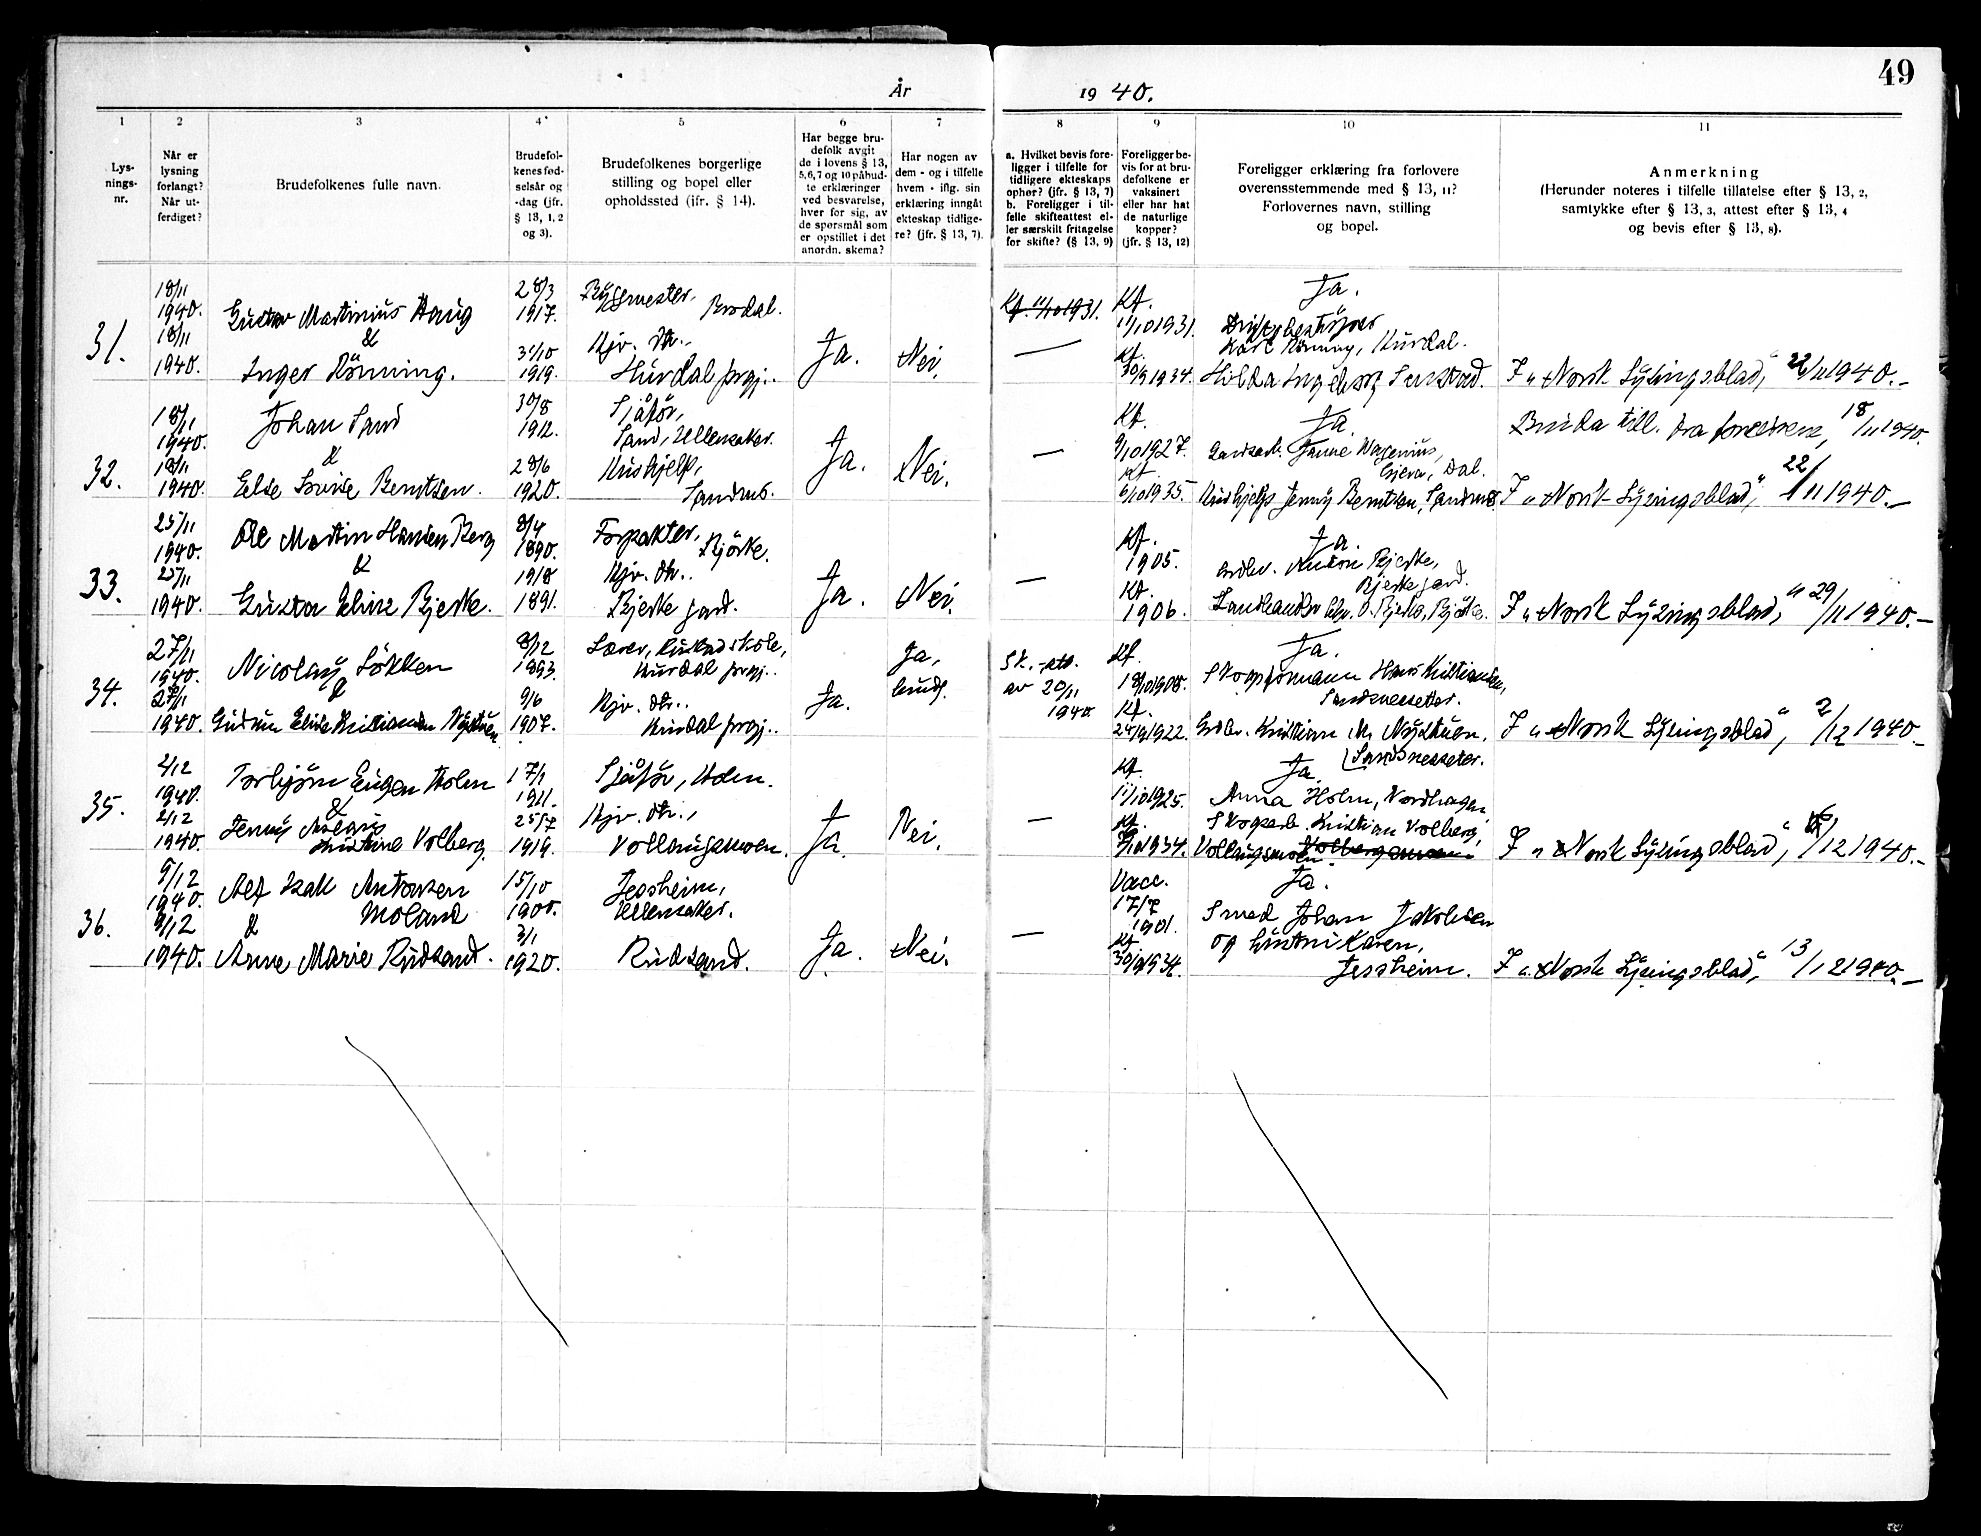 49
År 1940.
1 2 3 4 5 6 7 8 9 10 11
Lys-
nings-
nr.
Når er
lysning
forlangt?
Når ut-
ferdiget?
Brudefolkenes fulle navn.
Brudefol-
kenes fød-
selsår og
-dag (jfr.
§ 13, 1, 2
og 3).
Brudefolkenes borgerlige
stilling og bopel eller
opholdssted (jfr. § 14).
Har begge bru-
defolk avgit
de i lovens § 13,
5, 6, 7 og 10 påbud-
te erklæringer
ved besvarelse,
hver for sig, av
de spørsmål som
er opstillet i det
anordn. skema?
Har nogen av
dem - og i tilfelle
hvem - iflg. sin
erklæring inngått
ekteskap tidlige-
re? (jfr. § 13, 7).
a. Hvilket bevis fore-
ligger i tilfelle for
tidligere ekteskaps
ophør? (jfr. § 13, 7)
b. Foreligger i til-
felle skifteattest el-
ler særskilt fritagelse
for skifte? (§ 13, 9)
Foreligger be-
vis for at bru-
defolkene er
vaksinert
eller har hat
de naturlige
kopper?
(jfr. § 13, 12)
Foreligger erklæring fra forlovere
overensstemmende med § 13, 11?
Forlovernes navn, stilling
og bopel.
Anmerkning
(Herunder noteres i tilfelle tillatelse efter § 13, 2,
samtykke efter § 13, 3, attest efter § 13, 4
og bevis efter § 13, 8).
31.
18/11
1940.
18/11
1940.
Gustav Martinius Haug
&
Inger Rönning.
28/3
1917.
31/10
1919.
Byggmester,
Brodal.
Hjv. dtr.,
Hurdal prgj..
Ja.
Nei.
Kf. 11/10 1931.
—
Kf.
11/10 1931.
Kf.
30/9 1934.
Ja.
Driftsbestyrer
Kåre Rönning, Hurdal.
Hilda Ingeborg
I „Norsk Lysingsblad," 22/11 1940.—
32.
18/11
1940.
18/11
1940.
Johan Sand
&
Else Lovise Berntsen.
30/8
1912.
28/6
1920.
Sjåför,
Sand, Ullensaker.
Hushjelp,
Sandnes.
Ja.
Nei.
—
Kf.
9/10 1927.
Kf.
6/10 1935.
Ja.
Gjera, Dal.
Hushjelp Jenny Berntsen, Sandnes.
Bruda till. fra foreldrene, 18/11 1940.
I „Norsk Lysingsblad", 22/11 1940.—
33.
25/11
1940.
25/11
1940.
Ole Martin Hansen Berg
&
Gusta Eline Bjerke.
8/4
1890.
19/8
1891.
Forpakter,
Björke.
Hjv. dtr..
Bjerke gard.
Ja.
Nei.
—
Kf.
1905.
Kf.
1906.
Ja.
Grdbr. Anton Bjerke,
Bjerke gard.
Landhandler Chr. O. Bjerke, Björke.
I „Norsk Lysingsblad," 29/11 1940.—
34.
27/11
1940.
27/11
1940.
Nicolay Lökken
&
Gudrun Elise Kristiansen Nystuen
8/12
1893.
9/6
1907.
Lærer, Rustad skole,
Hurdal prgj..
Hjv. dtr..
Hurdal prgj..
Ja.
Ja,
brudg.
Sk.-att.
av 20/11
1940.
Kf.
18/10 1908.
Kf.
24/9 1922.
Ja.
Skogformann Hans Kristiansen,
Sandsnesseter.
Grdbr. Kristian M. Nystuen,
Sandsnesseter.
I „Norsk Lysingsblad", 2/12 1940.—
35.
2/12
1940.
2/12
1940.
Torbjörn Eugen Holm
&
Jenny
Kristine Volberg.
17/1
1911.
25/7
1919.
Sjåför, Holm.
Hjv. dtr.,
Vollaugsmoen.
Ja.
Nei.
—
Kf.
11/10 1925.
Kf.
1934.
Ja.
Anna Holm, Nordhagen,
Skogsarb. Kristian Volberg,
Vollaugsmoen
I „Norsk Lysingsblad", /12 1940.—
36.
9/12
1940.
9/12
1940.
Alf Isak Antonsen
Moland
&
Anne Marie Rudsand.
15/10
1900.
3/1
1920.
Jessheim,
Ullensaker.
Rudsand.
Ja.
Nei.
—
Vacc.
17/7
1901.
Kf.
30/9 1934.
Ja.
Smed Johan Jakobsen
og hustru Karen,
Jessheim.
I „Norsk Lysingsblad", 13/12 1940.—